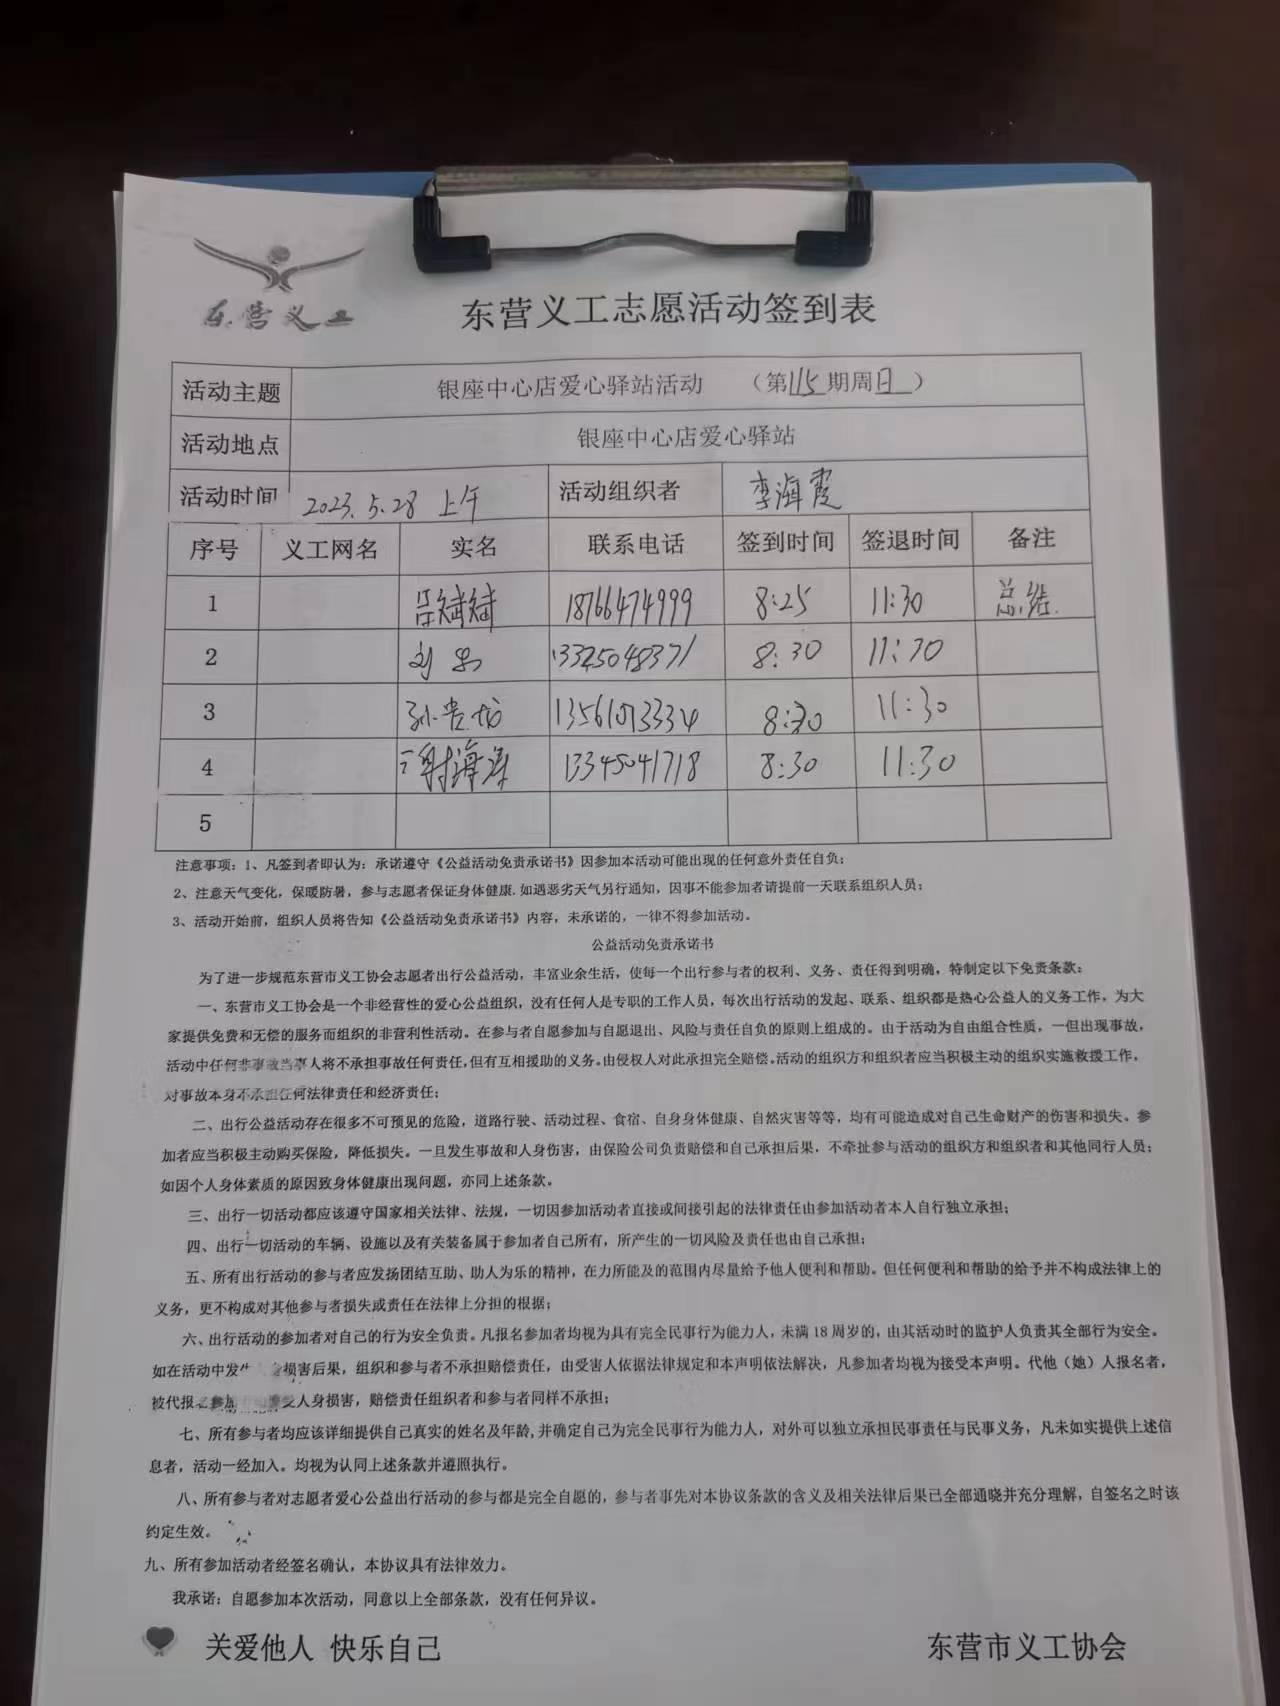 东营义工
东营义工志愿活动签到表
活动主题 银座中心店爱心驿站活动 （第115期周日）
活动地点 银座中心店爱心驿站
活动时间 2023.5.28 上午 活动组织者 李海霞
序号 义工网名 实名 联系电话 签到时间 签退时间 备注
1 吕斌斌 18766474999 8:25 11:30 总结
2 刘 13325048371 8:30 11:30
3 孙 8:30 11:30
4 谢海涛 13345041718 8:30 11:30
5
注意事项：1、凡签到者即认为：承诺遵守《公益活动免责承诺书》因参加本活动可能出现的任何意外责任自负；
2、注意天气变化，保暖防暑，参与志愿者保证身体健康.如遇恶劣天气另行通知，因事不能参加者请提前一天联系组织人员；
3、活动开始前，组织人员将告知《公益活动免责承诺书》内容，未承诺的，一律不得参加活动。
公益活动免责承诺书
为了进一步规范东营市义工协会志愿者出行公益活动，丰富业余生活，使每一个出行参与者的权利、义务、责任得到明确，特制定以下免责条款：
一、东营市义工协会是一个非经营性的爱心公益组织，没有任何人是专职的工作人员，每次出行活动的发起、联系、组织都是热心公益人的义务工作，为大
家提供免费和无偿的服务而组织的非营利性活动。在参与者自愿参加与自愿退出、风险与责任自负的原则上组成的。由于活动为自由组合性质，一但出现事故，
活动中任何非事故当事人将不承担事故任何责任，但有互相援助的义务。由侵权人对此承担完全赔偿。活动的组织方和组织者应当积极主动的组织实施救援工作，
对事故本身不承担任何法律责任和经济责任；
二、出行公益活动存在很多不可预见的危险，道路行驶、活动过程、食宿、自身身体健康、自然灾害等等，均有可能造成对自己生命财产的伤害和损失。参
加者应当积极主动购买保险，降低损失。一旦发生事故和人身伤害，由保险公司负责赔偿和自己承担后果，不牵扯参与活动的组织方和组织者和其他同行人员；
如因个人身体素质的原因致身体健康出现问题，亦同上述条款。
三、出行一切活动都应该遵守国家相关法律、法规，一切因参加活动者直接或间接引起的法律责任由参加活动者本人自行独立承担；
四、出行一切活动的车辆、设施以及有关装备属于参加者自己所有，所产生的一切风险及责任也由自己承担；
五、所有出行活动的参与者应发扬团结互助、助人为乐的精神，在力所能及的范围内尽量给予他人便利和帮助。但任何便利和帮助的给予并不构成法律上的
义务，更不构成对其他参与者损失或责任在法律上分担的根据；
六、出行活动的参加者对自己的行为安全负责。凡报名参加者均视为具有完全民事行为能力人，未满18周岁的，由其活动时的监护人负责其全部行为安全。
如在活动中发生 损害后果，组织和参与者不承担赔偿责任，由受害人依据法律规定和本声明依法解决，凡参加者均视为接受本声明。代他（她）人报名者，
被代报名参加 人身损害，赔偿责任组织者和参与者同样不承担；
七、所有参与者均应该详细提供自己真实的姓名及年龄，并确定自己为完全民事行为能力人，对外可以独立承担民事责任与民事义务，凡未如实提供上述信
息者，活动一经加入。均视为认同上述条款并遵照执行。
八、所有参与者对志愿者爱心公益出行活动的参与都是完全自愿的，参与者事先对本协议条款的含义及相关法律后果已全部通晓并充分理解，自签名之时该
约定生效。
九、所有参加活动者经签名确认，本协议具有法律效力。
我承诺：自愿参加本次活动，同意以上全部条款，没有任何异议。
关爱他人 快乐自己
东营市义工协会